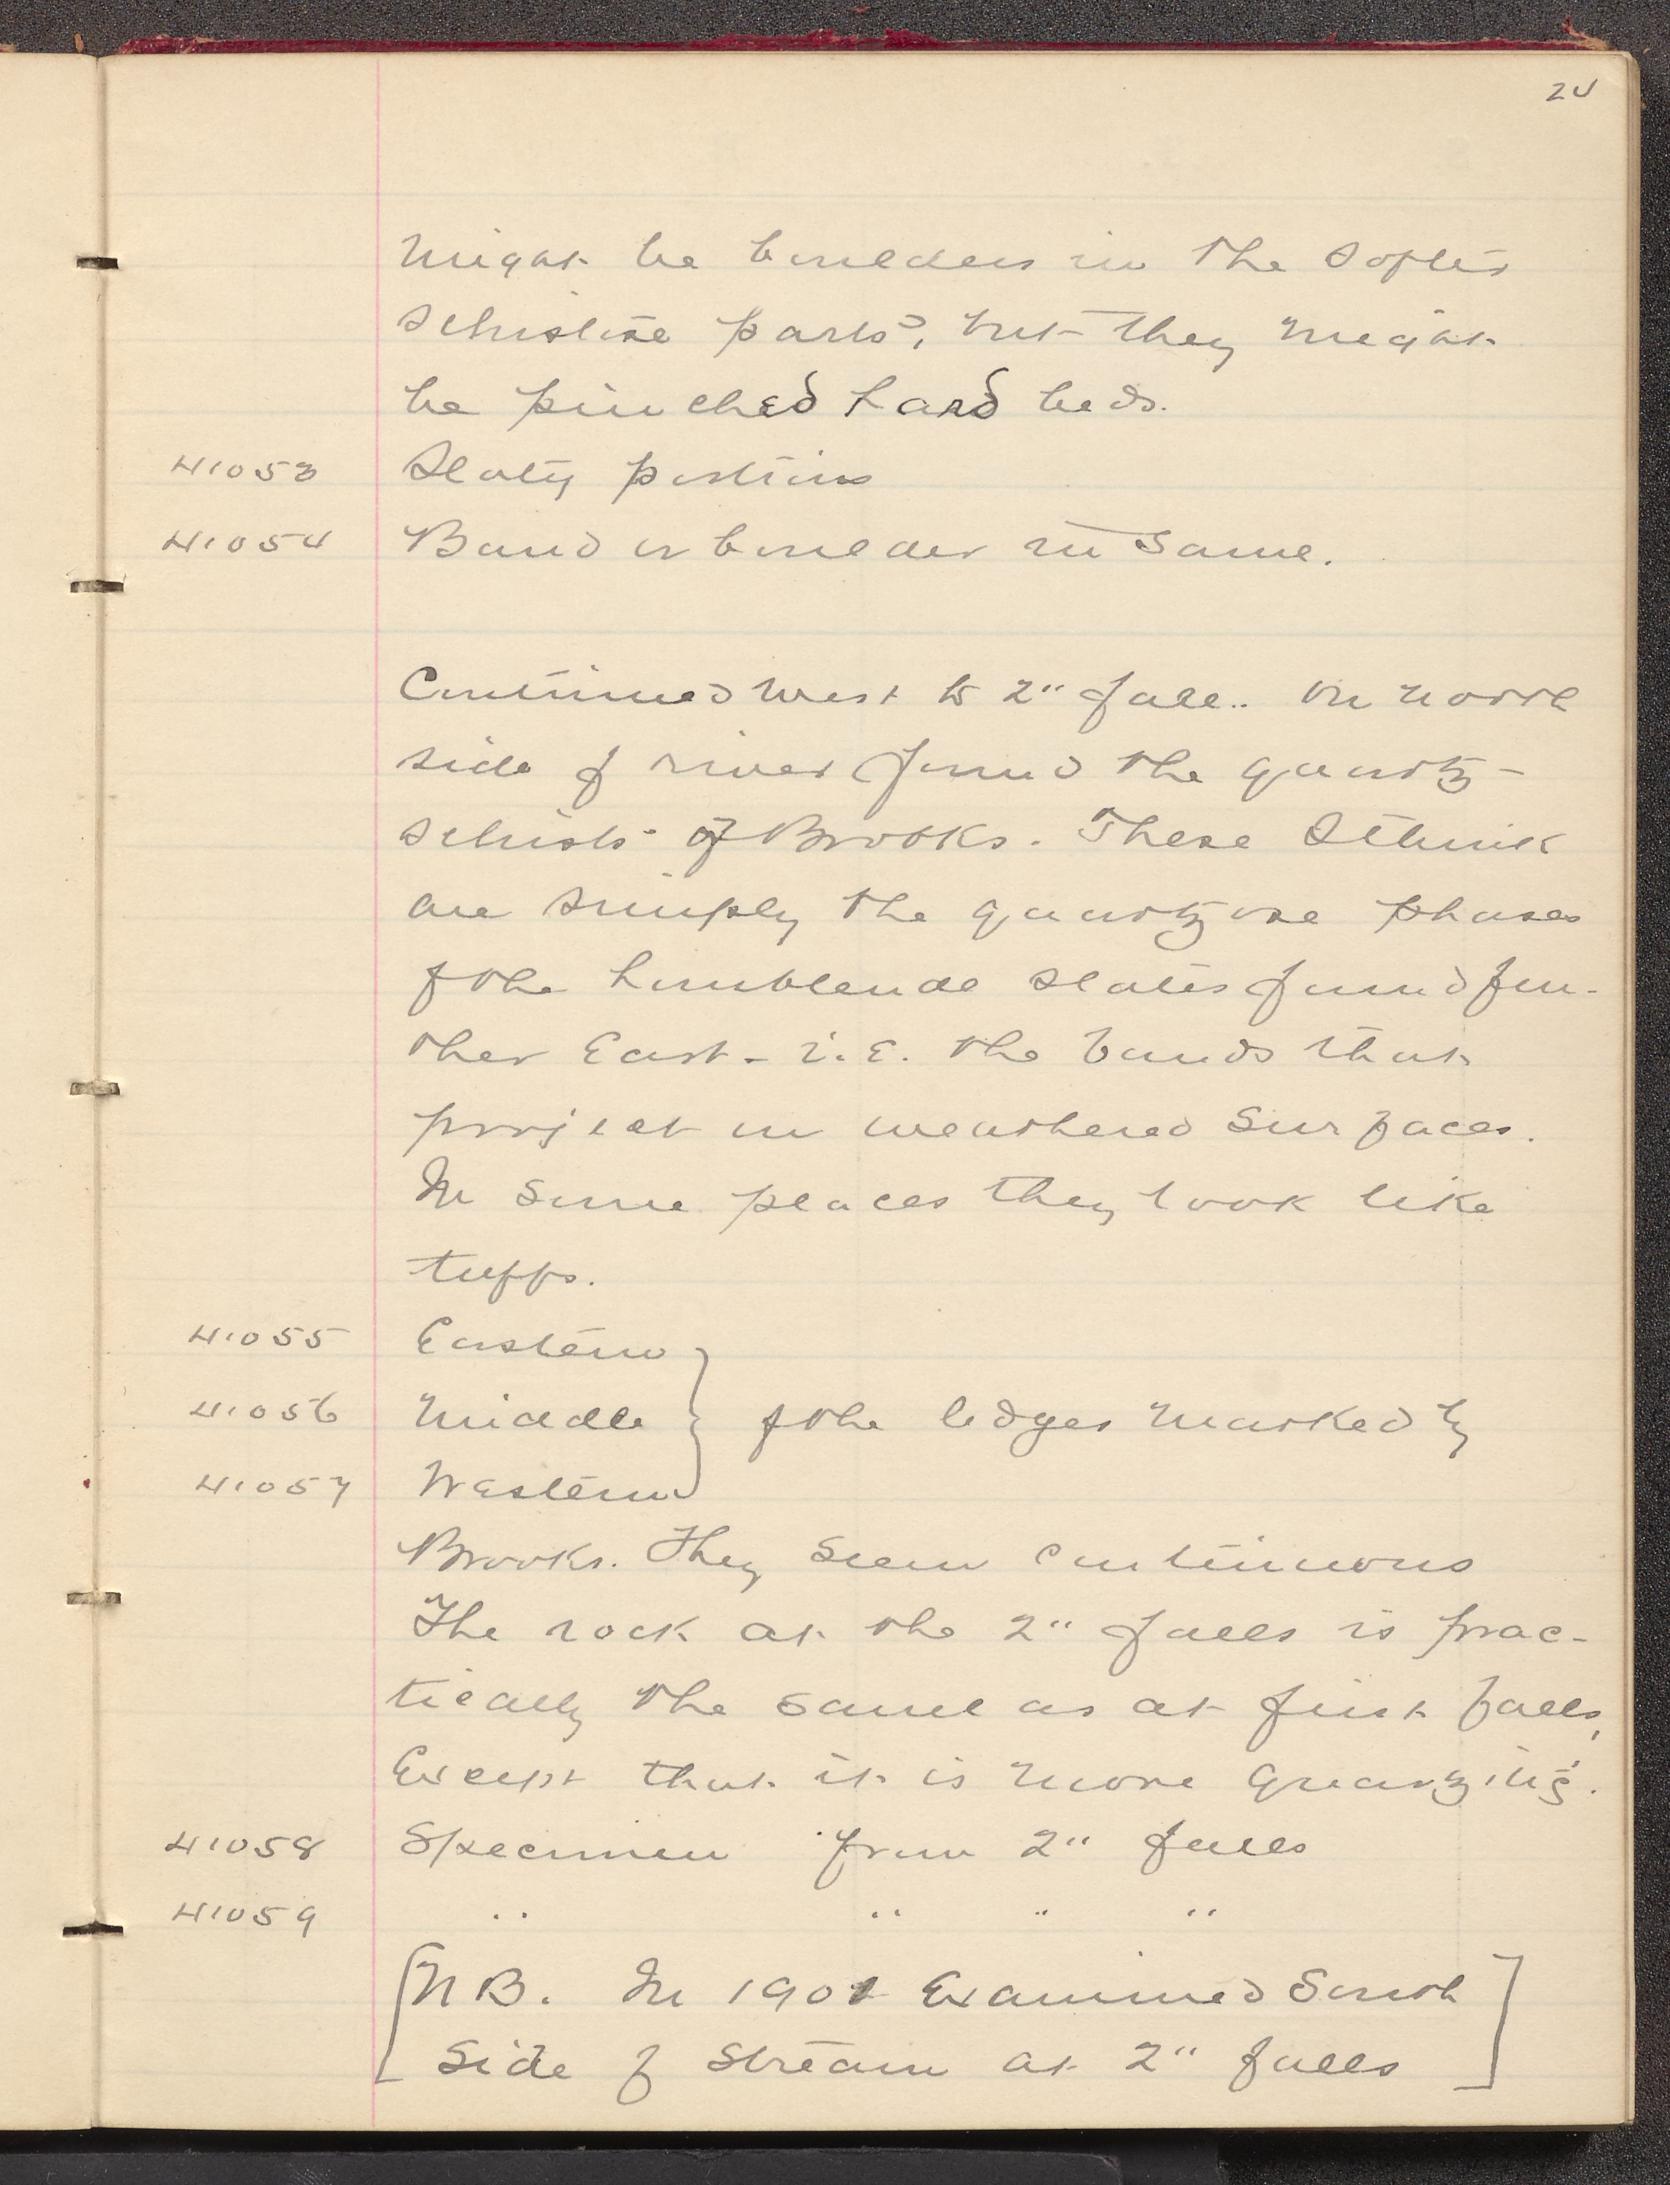 24
might be boulders in the softer
schistose parts, but they might
be pinched hard beds.
41053 Slaty portions
41054 Band or boulder in same.
Continued west to 2" fall.. On north
side of river found the quartz-
schists of Brooks. These I think
are simply the quartzose phases
of the hornblende slates found fur-
ther East - i.e. the bands that
project on weathered surfaces.
In some places they look like
tuffs.
41055 Eastern
41056 Middle } of the ledges marked by
41057 Western
Brooks. They seem continuous
The rock at the 2" falls is prac-
tically the same as at first falls,
Except that it is more quartzitic.
41058 Specimen from 2" falls
41059 " " " "
[N B. In 1901 Examined South
Side of Stream at 2" falls]